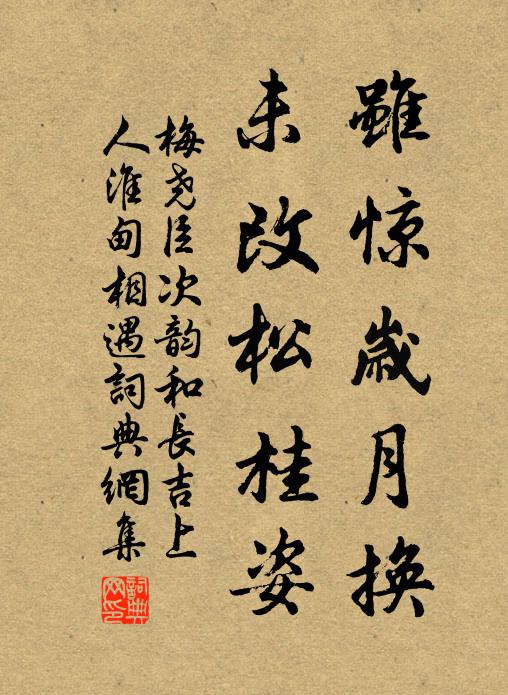 雖惊歲月換
未改松桂姿
梅尧臣次韵和長吉上
人淮甸相遇詞典網集
詞典网印